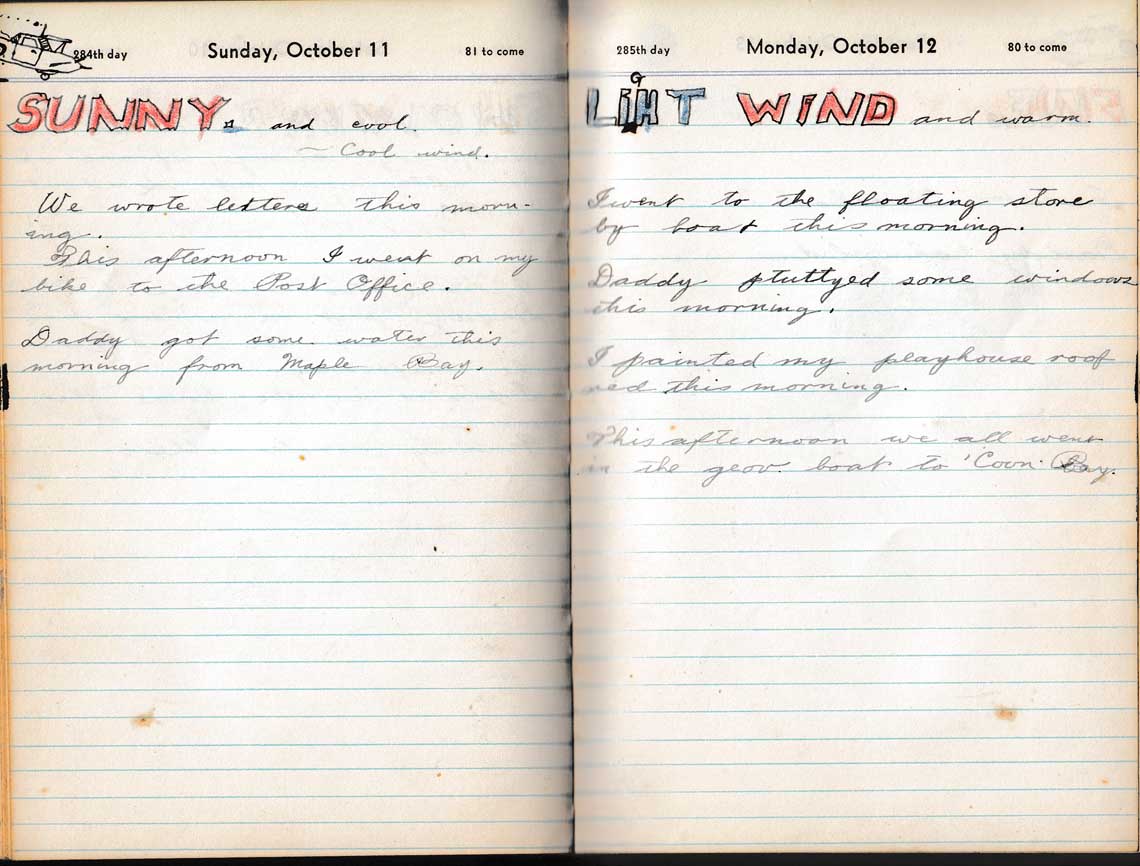 284th day Sunday, October 11 81 to come
SUNNY. and cool.
~ Cool wind.
We wrote letters this morn-
ing.
This afternoon I went on my
bike to the Post Office.
Daddy got some water this
morning from Maple Bay.
285th day Monday, October 12 80 to come
LIGHT WIND and warm.
I went to the floating store
by boat this morning.
Daddy puttyed some windows
this morning.
I painted my playhouse roof
red this morning.
This afternoon we all went
in the boat to 'Coon Bay.